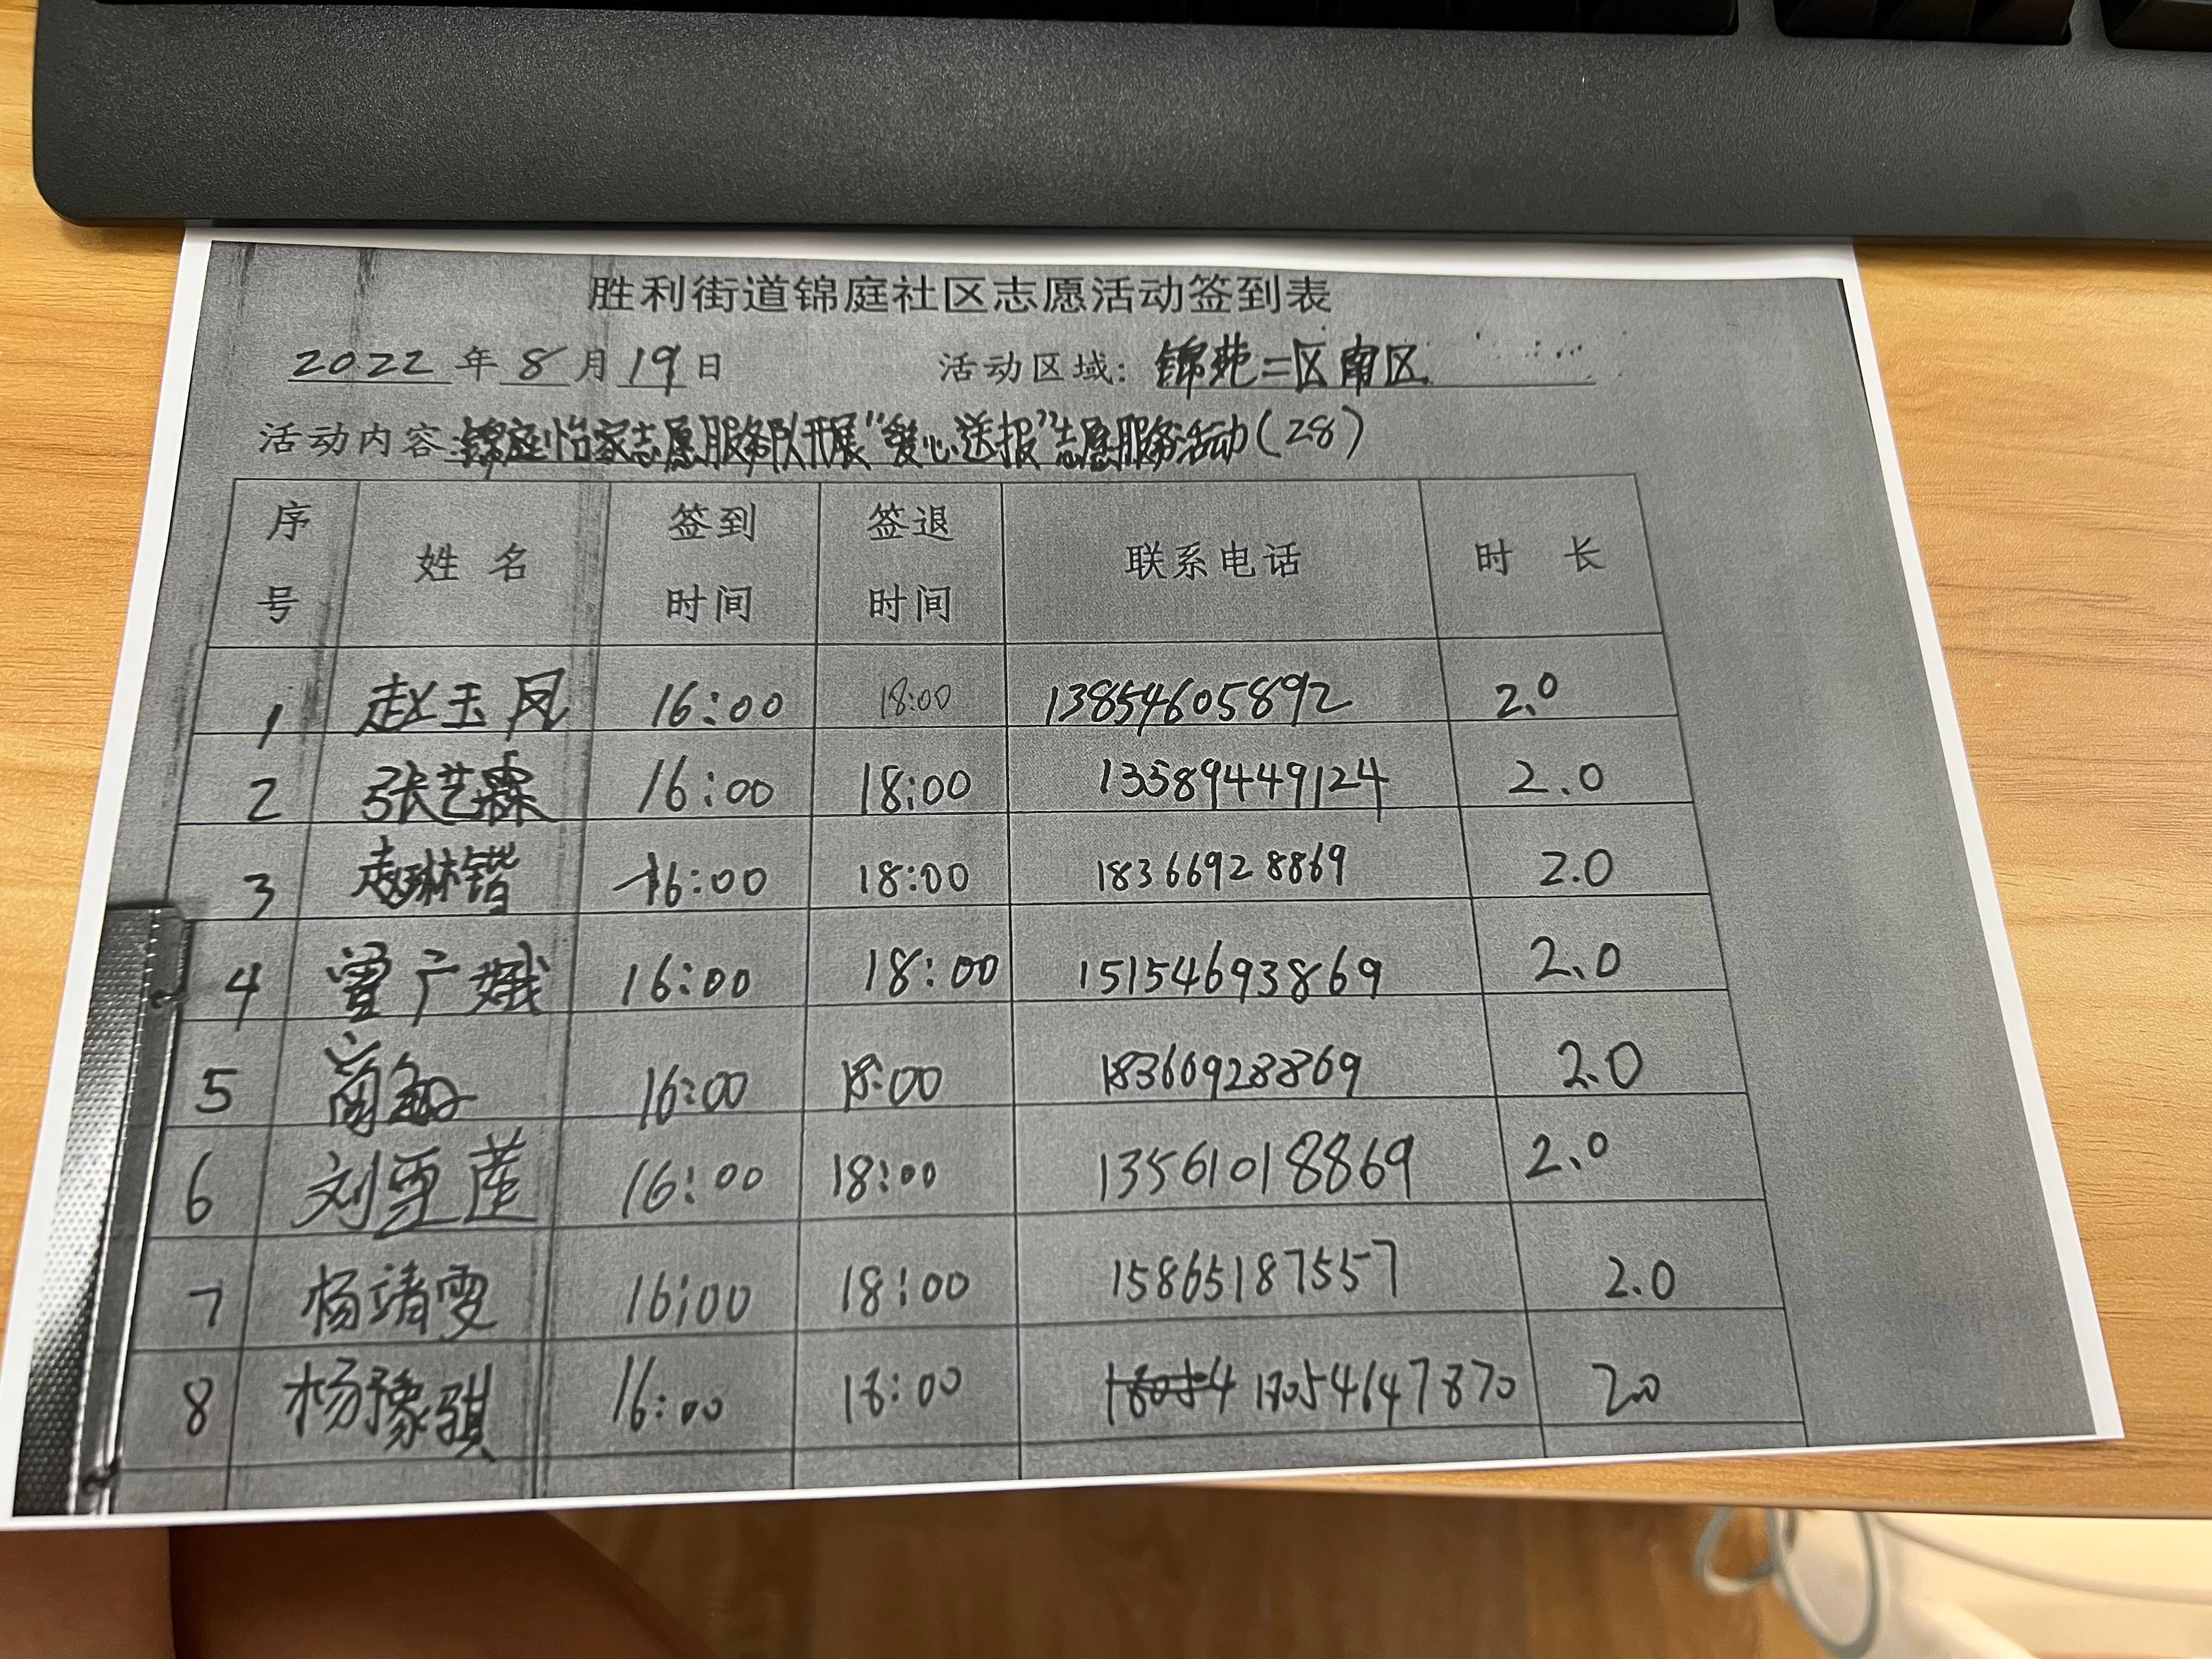 胜利街道锦庭社区志愿活动签到表
2022年8月19日 活动区域：锦苑二区南区
活动内容：锦庭怡家志愿服务队开展“爱心送报”志愿服务活动（28）
序号 姓名 签到时间 签退时间 联系电话 时长
1 赵玉凤 16:00 18:00 13854605892 2.0
2 张艺霖 16:00 18:00 13589449124 2.0
3 赵琳锴 16:00 18:00 18366928869 2.0
4 曾广娥 16:00 18:00 15154693869 2.0
5 商敏 16:00 18:00 18366928869 2.0
6 刘 16:00 18:00 13561018869 2.0
7 杨靖雯 16:00 18:00 15865187557 2.0
8 杨豫骐 16:00 18:00 18054647870 2.0